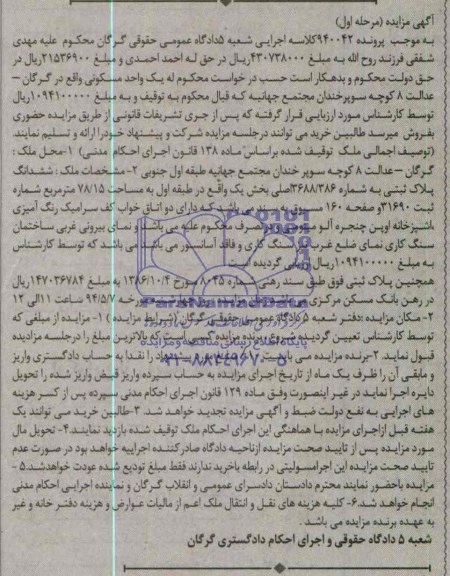 آگهی مزایده (مرحله اول)
به موجب پرونده ۹۴۰۰۴۲ کلاسه اجرایی شعبه ۵ دادگاه عمومی حقوقی گرگان محکوم علیه مهدی
شفقی فرزند روح الله به مبلغ ۴۳۰۷۳۸۰۰۰ ریال در حق له احمد احمدی و مبلغ ۲۱۵۳۶۹۰۰ ریال در
حق دولت محکوم و بدهکار است حسب در خواست محکوم له یک واحد مسکونی واقع در گرگان –
عدالت ۸ کوچه سوپرخندان مجتمع جهانیه که قبال محکوم به توقیف و به مبلغ ۱۰۹۴۱۰۰۰۰۰ ریال
توسط کارشناس مورد ارزیابی قرار گرفته که پس از جری تشریفات قانونی از طریق مزایده حضوری
بفروش میرسد طالبین خرید می توانند درجلسه مزایده شرکت و پیشنهاد خودرا ارائه و تسلیم نمایند
(توصیف اجمالی ملک توقیف شده براساس ماده ۱۳۸ قانون اجرای احکام مدنی) ۱-محل ملک :
گرگان –عدالت ۸ کوچه سوپر خندان مجتمع جهانیه طبقه اول جنوبی ۲-مشخصات ملک : ششدانگ
پلاک ثبتی به شماره ۳۶۸۸/۳۸۶ اصلی بخش یک واقع در طبقه اول به مساحت ۷۸/۱۵ مترمربع شماره
ثبت ۳۱۶۹۰ و صفحه ۱۶۰ مسبوق به سند می باشد که دارای دو اتاق خواب کف سرامیک رنگ آمیزی
اشپزخانه اوپن پنجره آلو درتصرف محکوم علیه می باشد و نمای بیرونی غربی ساختمان
سنگ کاری نمای ضلع غربی سنگ کاری و فاقد آسانسور می باشد می باشد که توسط کارشناس
به مبلغ ۱۰۹۴۱۰۰۰۰۰ ریال ارزیابی گردیده است
همچنین پلاک ثبتی فوق طبق سند رهنی شماره ۸۰۲۵ مورخ ۱۳۸۶/۱۰/۴ به مبلغ ۱۴۷۰۳۶۷۸۴ ریال
در رهن بانک مسکن مرکزی مورخه ۹۴/۵/۷ ساعت ۱۱ الی ۱۲
۲- مکان مزایده :دفتر شعبه ۵ دادگاه عمومی حقوقی گرگان (شرایط مزایده) ۱- مزایده از مبلغی که
توسط کارشناس تعیین گردیده شروع و برنده مزایده کسی است که بالاترین مبلغ را درجلسه مزایده
قبول نماید. ۲-برنده مزایده می بایست نقدا به حساب دادگستری واریز
و مابقی آن را ظرف یک ماه از تاریخ اجرای مزایده به حساب سپرده واریز قبض واریز شده را تحویل
دایره اجرا نماید در غیر اینصورت وفق ماده ۱۲۹ قانون اجرای احکام مدنی سپرده پس از کسر هزینه
های اجرایی به نفع دولت ضبط و آگهی مزایده تجدید خواهد شد. ۳-طالبین خرید می توانند یک
هفته قبل ازاجرای مزایده با هماهنگی این اجرای احکام ملک توقیف شده بازدید نمایند.۴- تحویل مال
مورد مزایده پس از تایید صحت مزایده ازناحیه دادگاه صادرکننده اجراییه خواهد بود در صورت عدم
تایید صحت مزایده این اجرامسولیتی در رابطه باخرید ندارند فقط مبلغ تودیع شده عودت خواهدشد. ۵ -
مزایده باحضور نماینده محترم دادستان دادسرای عمومی و انقلاب گرگان و نماینده اجرایی احکام مدنی
انجام خواهد شد.۶- کلیه هزینه های نقل و انتقال ملک اعم از مالیات عوارض و هزینه دفتر خانه و غیر
به عهده برنده مزایده می باشد .
شعبه ۵ دادگاه حقوقی و اجرای احکام دادگستری گرگان
ParsNamadData
پایگاه اطلاع رسانی مناقصه و مزایده
۰۲۱-۸۸۳۴۹۶۷۰-۵